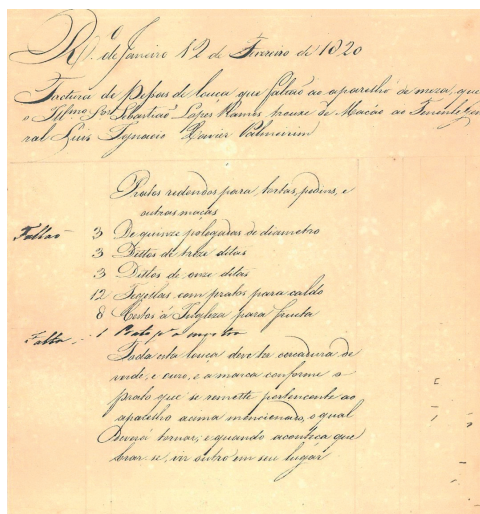 Rio de Janeiro 12 de Fevereiro de 1820
Factura de Pessas de louca que faltão ao aparelho de meza, que
o Illmo Snr Sebastião Lopes Ramos trouxe de Macáo ao Tenente Gene
ral Luis Ignacio Xavier Palmeirim
Pratos redondos para tortas, podins, e
outras maças
Faltão 3 De quinze polegadas de diametro
3 Dittos de treze ditas
3 Dittos de onze ditas
12 Tigellas com pratos para caldo
8 Cestos á Ingleza para fructa
Falta 1 Prato pa amostra
Toda esta louca deve ter cercadura de
verde, e ouro, e a marca conforme o
prato que se remette pertencente ao
aparelho acima mencionado, o qual
deverá tornar, e quando aconteça que
brar-se, vir outro em seu lugar